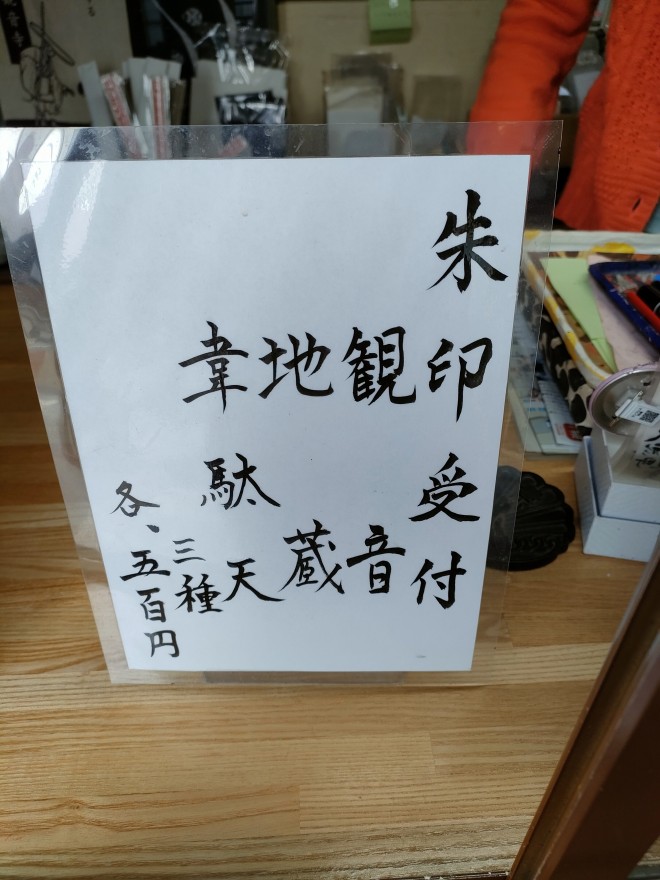 朱印受付
観音
地蔵
韋駄天
三種
各、五百円